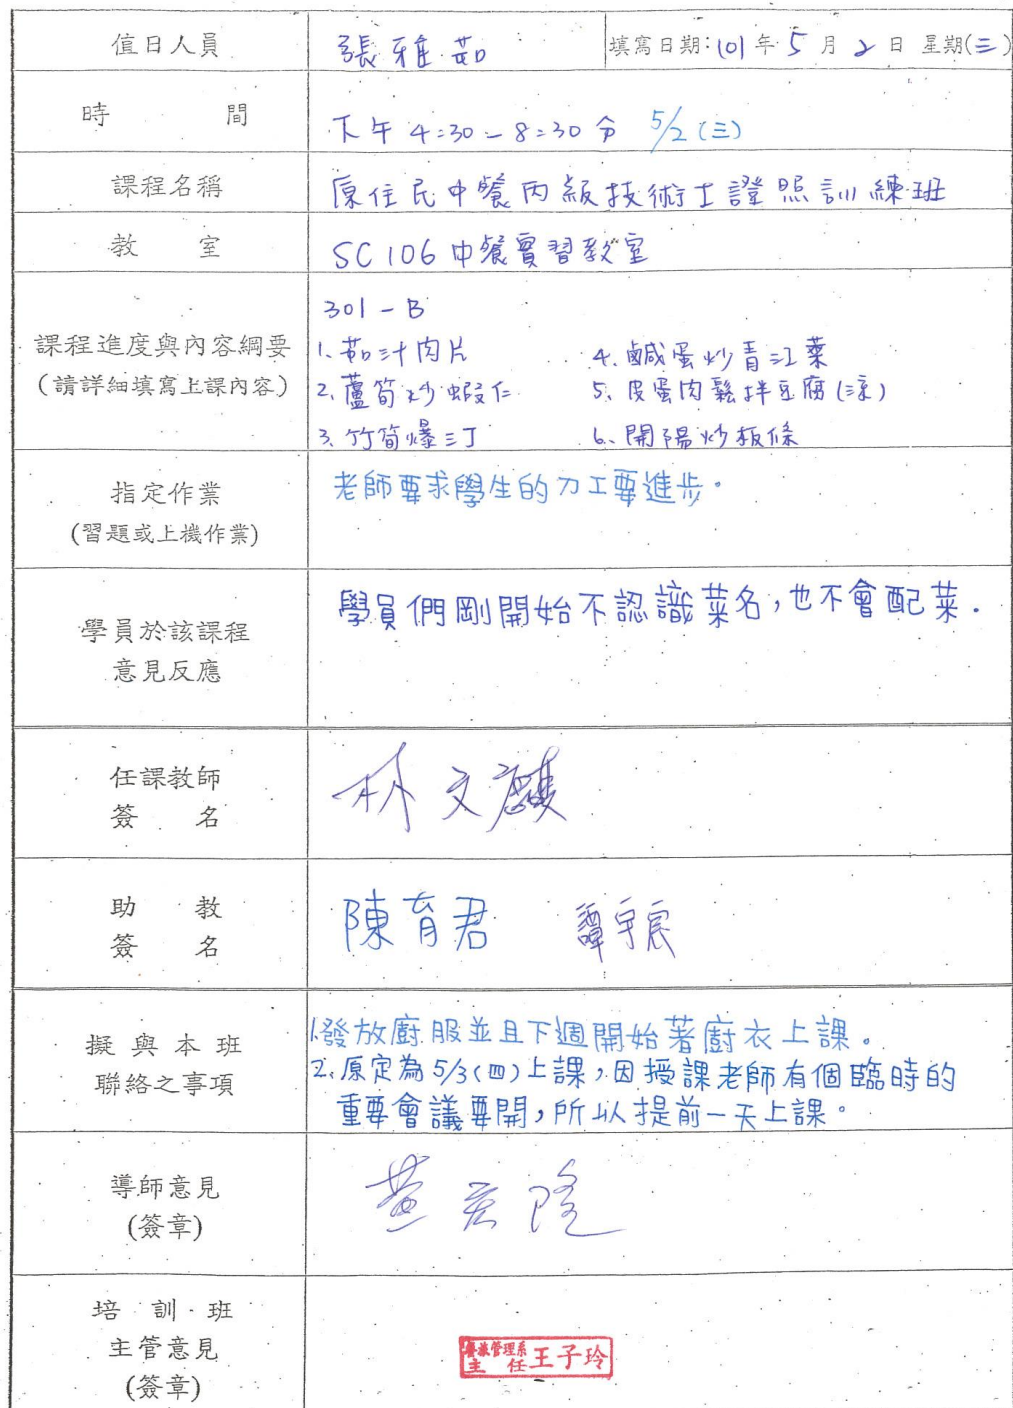 值日人員 張雅茹 填寫日期:101年5月2日 星期(三)
時 間 下午4:30-8:30分 5/2(三)
課程名稱 原住民中餐丙級技術士證照訓練班
教 室 SC106中餐實習教室
301-B
課程進度與內容綱要
(請詳細填寫上課內容)
1.茄汁肉片 4.鹹蛋炒青江菜
2.蘆筍炒蝦仁 5.皮蛋肉鬆拌豆腐(涼)
3.竹筍爆三丁 6.開陽炒板條
指定作業
(習題或上機作業)
老師要求學生的刀工要進步。
學員於該課程
意見反應
學員們剛開始不認識菜名,也不會配菜.
任課教師
簽 名
林文
助 教
簽 名
陳育君 譚宇宸
擬與本班
聯絡之事項
1.發放廚服並且下週開始著廚衣上課。
2.原定為5/3(四)上課,因授課老師有個臨時的
重要會議要開,所以提前一天上課。
導師意見
(簽章)
培訓班
主管意見
(簽章)
管理系
主任 王子玲